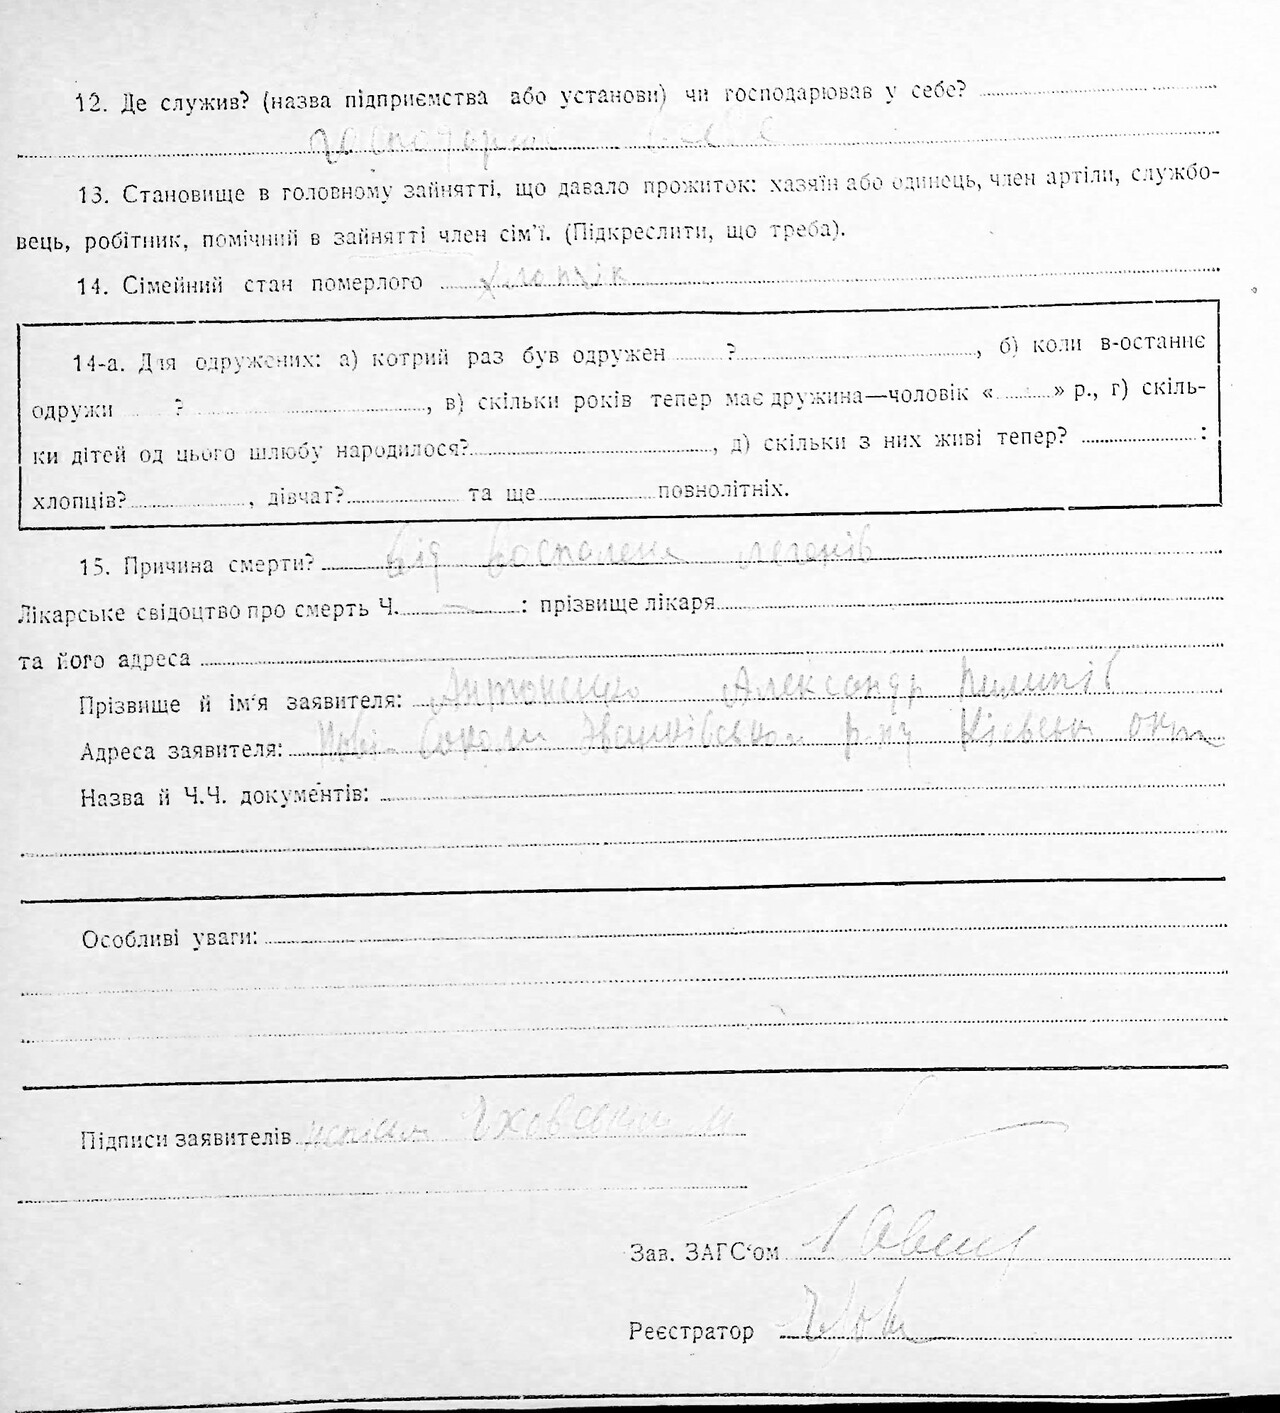 12. Де служив? (назва підприємства або установи) чи господарював у себе?
13. Становище в головному зайнятті, що давало прожиток: хазяїн або одинець, член артіли, службо-
вець, робітник, помічний в зайнятті член сім'ї. (Підкреслити, що треба).
14. Сімейний стан померлого хлопчік
14-а. Для одружених: а) котрий раз був одружен ?, б) коли в-останнє
одружи ?, в) скільки років тепер має дружина—чоловік « » р., г) скіль-
ки дітей од цього шлюбу народилося?, д) скільки з них живі тепер? :
хлопців?, дівчат? та ще повнолітніх.
15. Причина смерти? Від
Лікарське свідоцтво про смерть Ч. : прізвище лікаря
та його адреса
Прізвище й ім'я заявителя: Антоненко Александр
Адреса заявителя:
Назва й Ч.Ч. документів:
Особливі уваги:
Підписи заявителів
Зав. ЗАГС'ом
Реєстратор